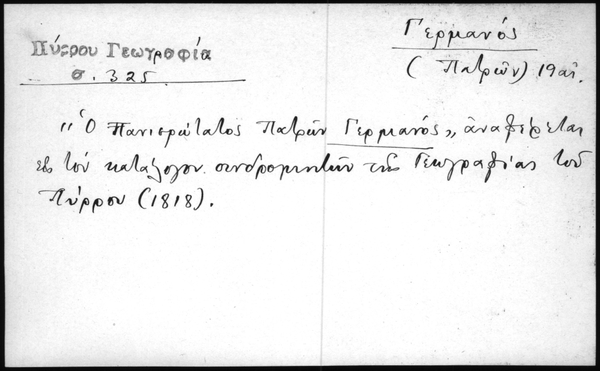 Πύρρου Γεωγραφία
σ. 325
Γερμανός
(Πατρῶν) 19 αἰ.
"Ὁ Πανιερώτατος Πατρῶν Γερμανός„ ἀναφέρεται
εἰς τὸν κατάλογον συνδρομητῶν τῆς Γεωγραφίας τοῦ
Πύρρου (1818).